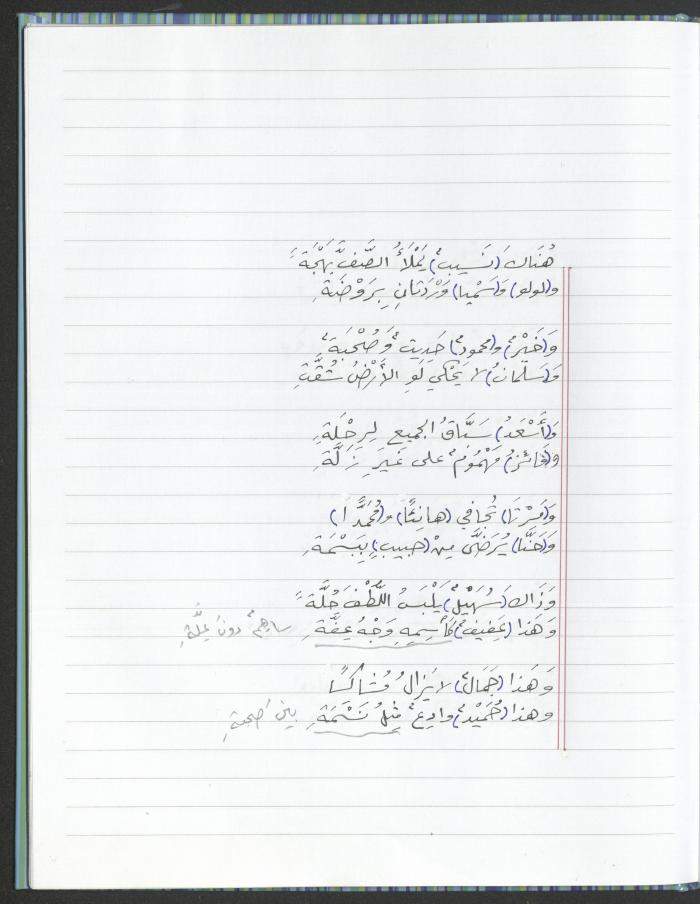 هُنَاكَ (نَسِيبٌ) يَمْلَأُ الصَّفَّ بَهْجَةً
و(لولو) وَ(سَمْيا) وَرْدَتانِ بِرَوْضَةِ
وَ(خَيْرٌ) و(محمودٌ) حَدِيثٌ وَصُحْبَةٌ
وَ(سَلمانُ) لا يَحْكي لَوِ الأَرْضُ شُقَّتِ
وَ(أَسْعَدُ) سَبَّاقُ الجميعِ لِرِحْلَةٍ
و(فائزُ) مَهْمُومٌ على غَيرِ زَلَّةِ
وَ(مِرْتَا) تُجافي (هانِئًا) و(مُحَمَّدًا)
وَ(حَنَّا) يُرَضَّى مِنْ (حبيبٍ) بِبَسْمَةِ
وَذَاكَ (سُهَيْلٌ) يَلْبَسُ اللُّطْفَ حُلَّةً
وَهَذا (عَفيفٌ) كَأسمِهِ وَجْهُ عِفَّةِ ساهِمٌ دونَ عِلَّةِ
وَهَذا (جَمَالٌ) لا يَزالُ مُشاكسًا
وهذا (حُمَيْدٌ) وادِعٌ مِثْلُ نَسْمَةِ بينَ صحبةِ